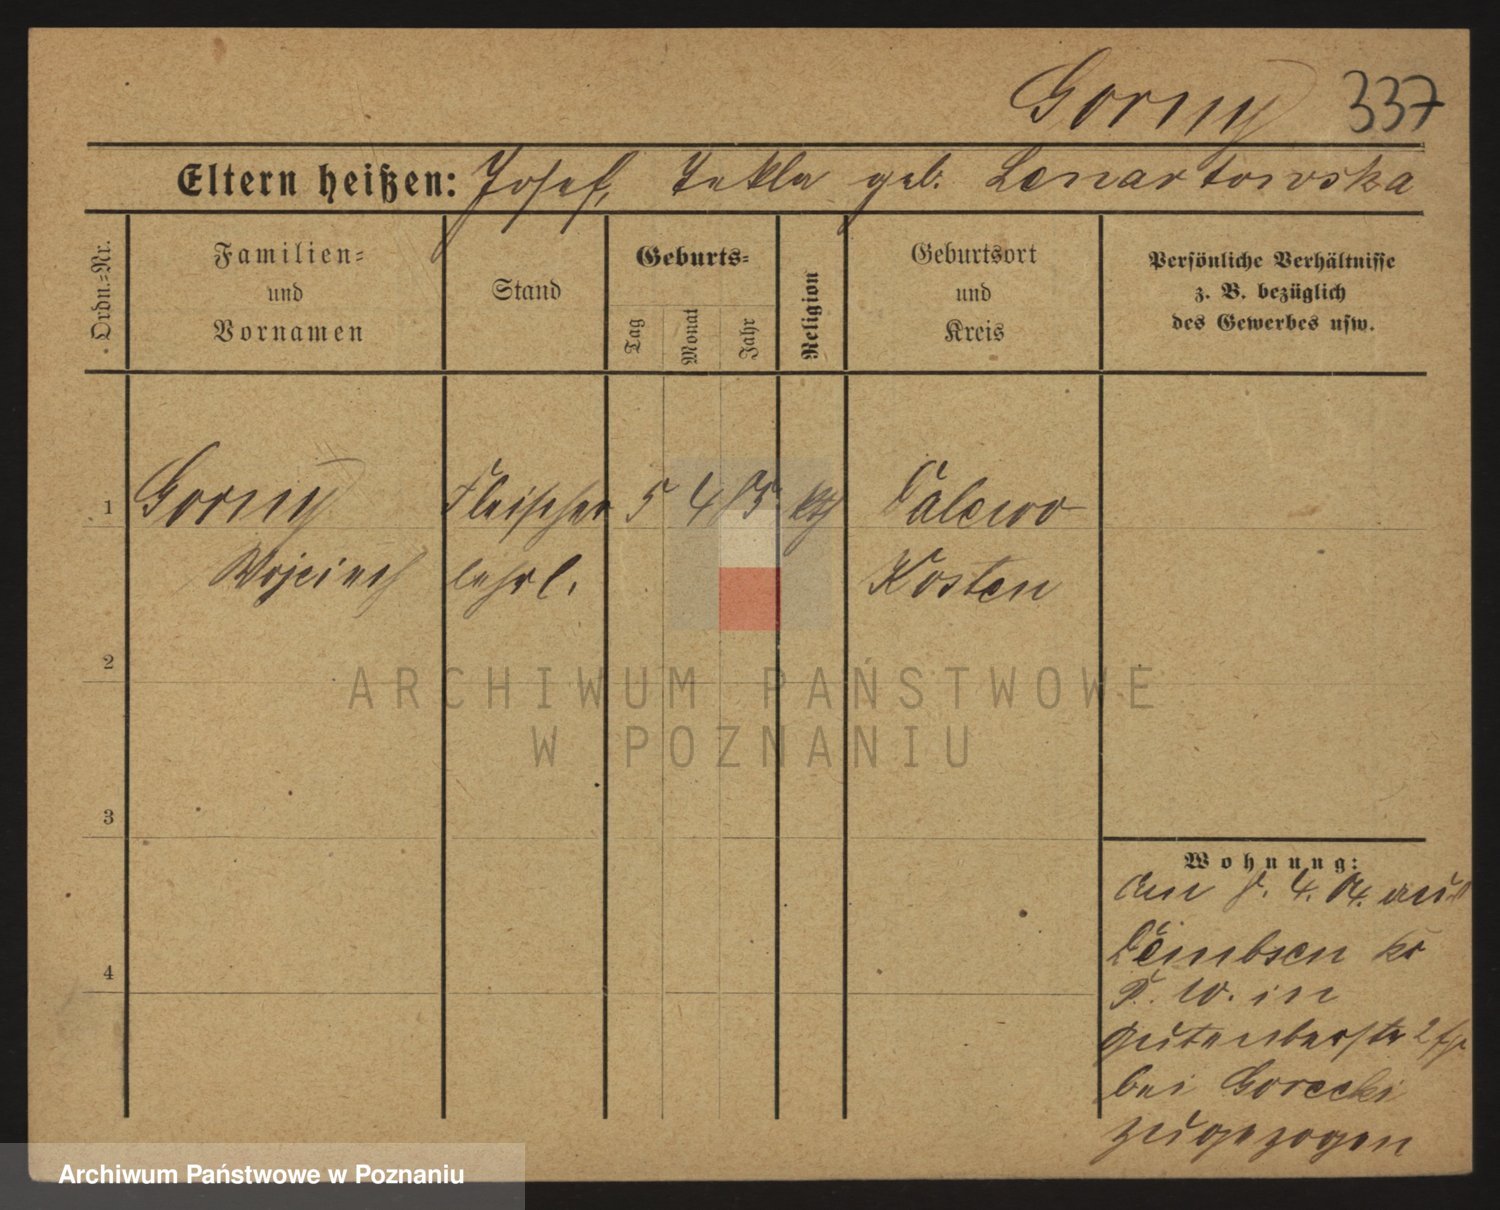 Gorny 337
Eltern heißen: Josef, Tekla geb. Lenartowska
Ordn.=Nr.
Familien=
und
Vornamen
Stand
Geburts=
Tag
Monat
Jahr
Religion
Geburtsort
und
Kreis
Persönliche Verhältnisse
z. B. bezüglich
des Gewerbes usw.
1 Gorny Fleischer 5 4 kth Dalewo
Wojciech lehrl. Kosten
2
3
4
Wohnung:
Am 4. aus
Dembsen
in
Gutenbergstr 2
bei Gorecki
zugezogen
ARCHIWUM PAŃSTWOWE
W POZNANIU
Archiwum Państwowe w Poznaniu